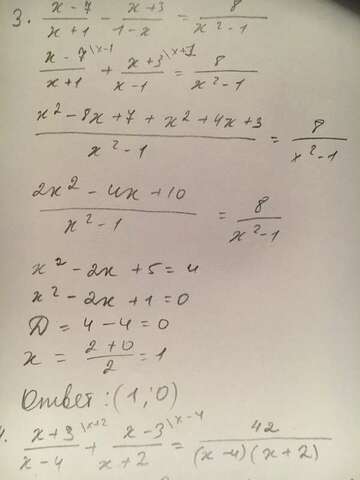 3. (x-7)/(x+1) - (x+3)/(1-x) = 8/(x²-1)
(x-7)/(x+1) \x-1 + (x+3)/(x-1) \x+1 = 8/(x²-1)
(x²-8x+7+x²+4x+3)/(x²-1) = 8/(x²-1)
(2x²-4x+10)/(x²-1) = 8/(x²-1)
x²-2x+5=4
x²-2x+1=0
Д=4-4=0
x = (2+0)/2 = 1
Ответ: (1;0)
4. (x+3)/(x-4) \x+2 + (x-3)/(x+2) \x-4 = 42/((x-4)(x+2))